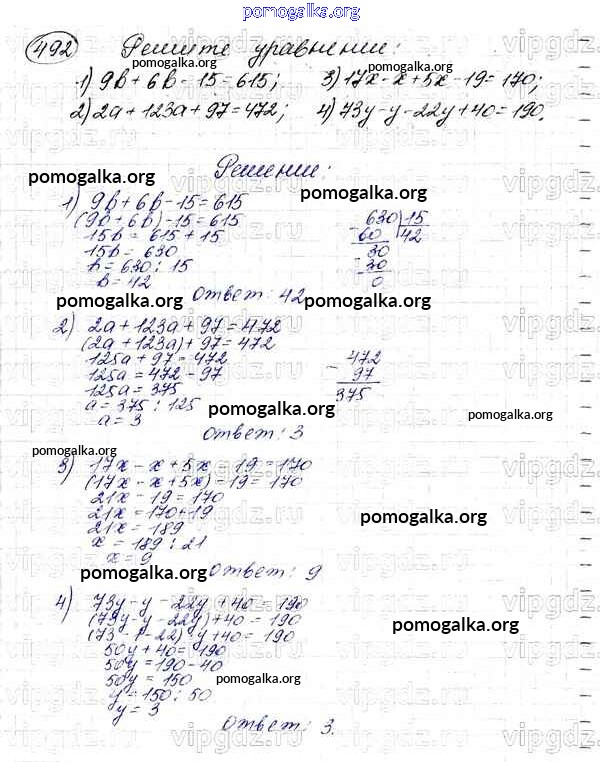 pomogalka.org
492 Решите уравнении:
1) 9b + 6b - 15 = 615; 3) 17x - x + 5x - 19 = 170;
2) 2a + 123a + 97 = 472; 4) 73y - y - 22y + 40 = 190.
Решение:
pomogalka.org pomogalka.org
1) 9b + 6b - 15 = 615
(9b + 6b) - 15 = 615
15b = 615 + 15
15b = 630
b = 630 : 15
b = 42
630 | 15
- 60 42
30
- 30
0
Ответ: 42
pomogalka.org pomogalka.org
2) 2a + 123a + 97 = 472
(2a + 123a) + 97 = 472
125a + 97 = 472
125a = 472 - 97
125a = 375
a = 375 : 125
a = 3
472
- 97
375
pomogalka.org pomogalka.org
Ответ: 3
pomogalka.org
3) 17x - x + 5x - 19 = 170
(17x - x + 5x) - 19 = 170
21x - 19 = 170
21x = 170 + 19
21x = 189
x = 189 : 21
x = 9
pomogalka.org
pomogalka.org Ответ: 9
4) 73y - y - 22y + 40 = 190
(73y - y - 22y) + 40 = 190
(73 - 1 - 22) y + 40 = 190
50y + 40 = 190
50y = 190 - 40
50y = 150
y = 150 : 50
y = 3
pomogalka.org
pomogalka.org
Ответ: 3.
vipgdz.ru